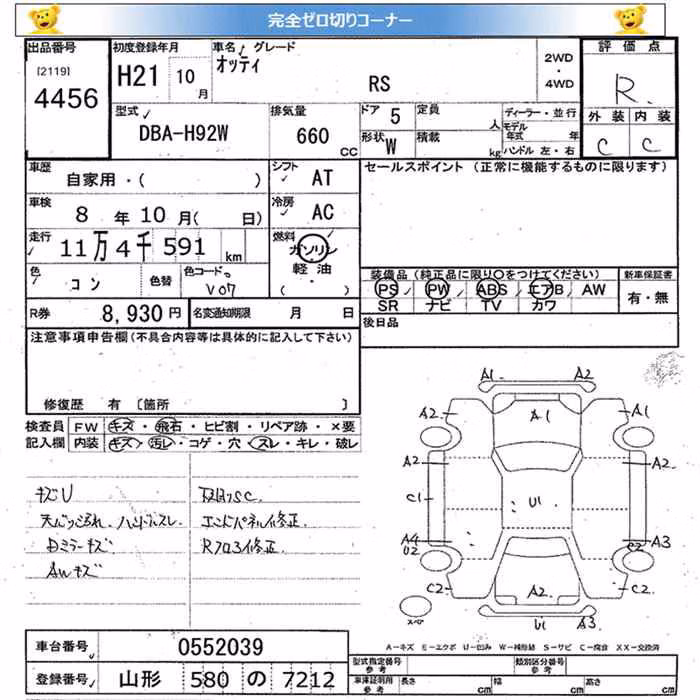 完全ゼロ切りコーナー
出品番号 初度登録年月 車名 グレード 評価点
[2119] オッティ 2WD
4456 H21 10月 RS ・4WD R.
型式 排気量 ドア 5 定員 人 ディーラー・並行 外装 内装
DBA-H92W 660 CC 形状 W 積載 kg モデル年式 年 ハンドル 左・右 C C
車歴 シフト セールスポイント (正常に機能するものに限ります)
自家用・( ) AT
車検 8年10月( 日) 冷房 AC
走行 11万4千591 km 燃料 ガソリン
軽油
・( )
色 コン 色替 色コードNo. V07 装備品 (純正品に限り○をつけてください) 新車保証書
PS PW ABS エアB AW 有・無
R券 8,930円 名変通知期限 月 日 SR ナビ TV カワ
注意事項申告欄(不具合内容等は具体的に記入して下さい) 後日品
修復歴 有 〔箇所 〕
検査員 FW キズ・飛石・ヒビ割・リペア跡・×要
記入欄 内装 キズ・汚レ・コゲ・穴・スレ・キレ・破レ
キズU
ハンドルスレ
Dミラーキズ エンドパネル修正.
AWキズ
A1 A2
A2 A1 A1
A2 A2
C1 U1
A4 A3
U2 C2
C2 A2 C2
スペア U1 A3
A-キズ E-エクボ U-凹み W-補修跡 S-サビ C-腐食 XX-交換済
車台番号 0552039
型式指定番号 参考 類別区分番号 参考
登録番号 山形 580 の 7212
車庫証明用 参考 長さ cm 幅 cm 高さ cm